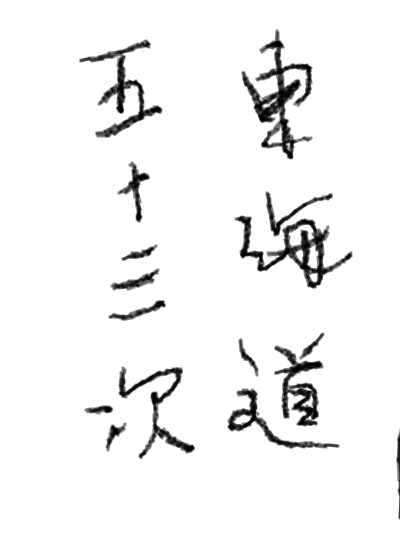 東海道
五十三次